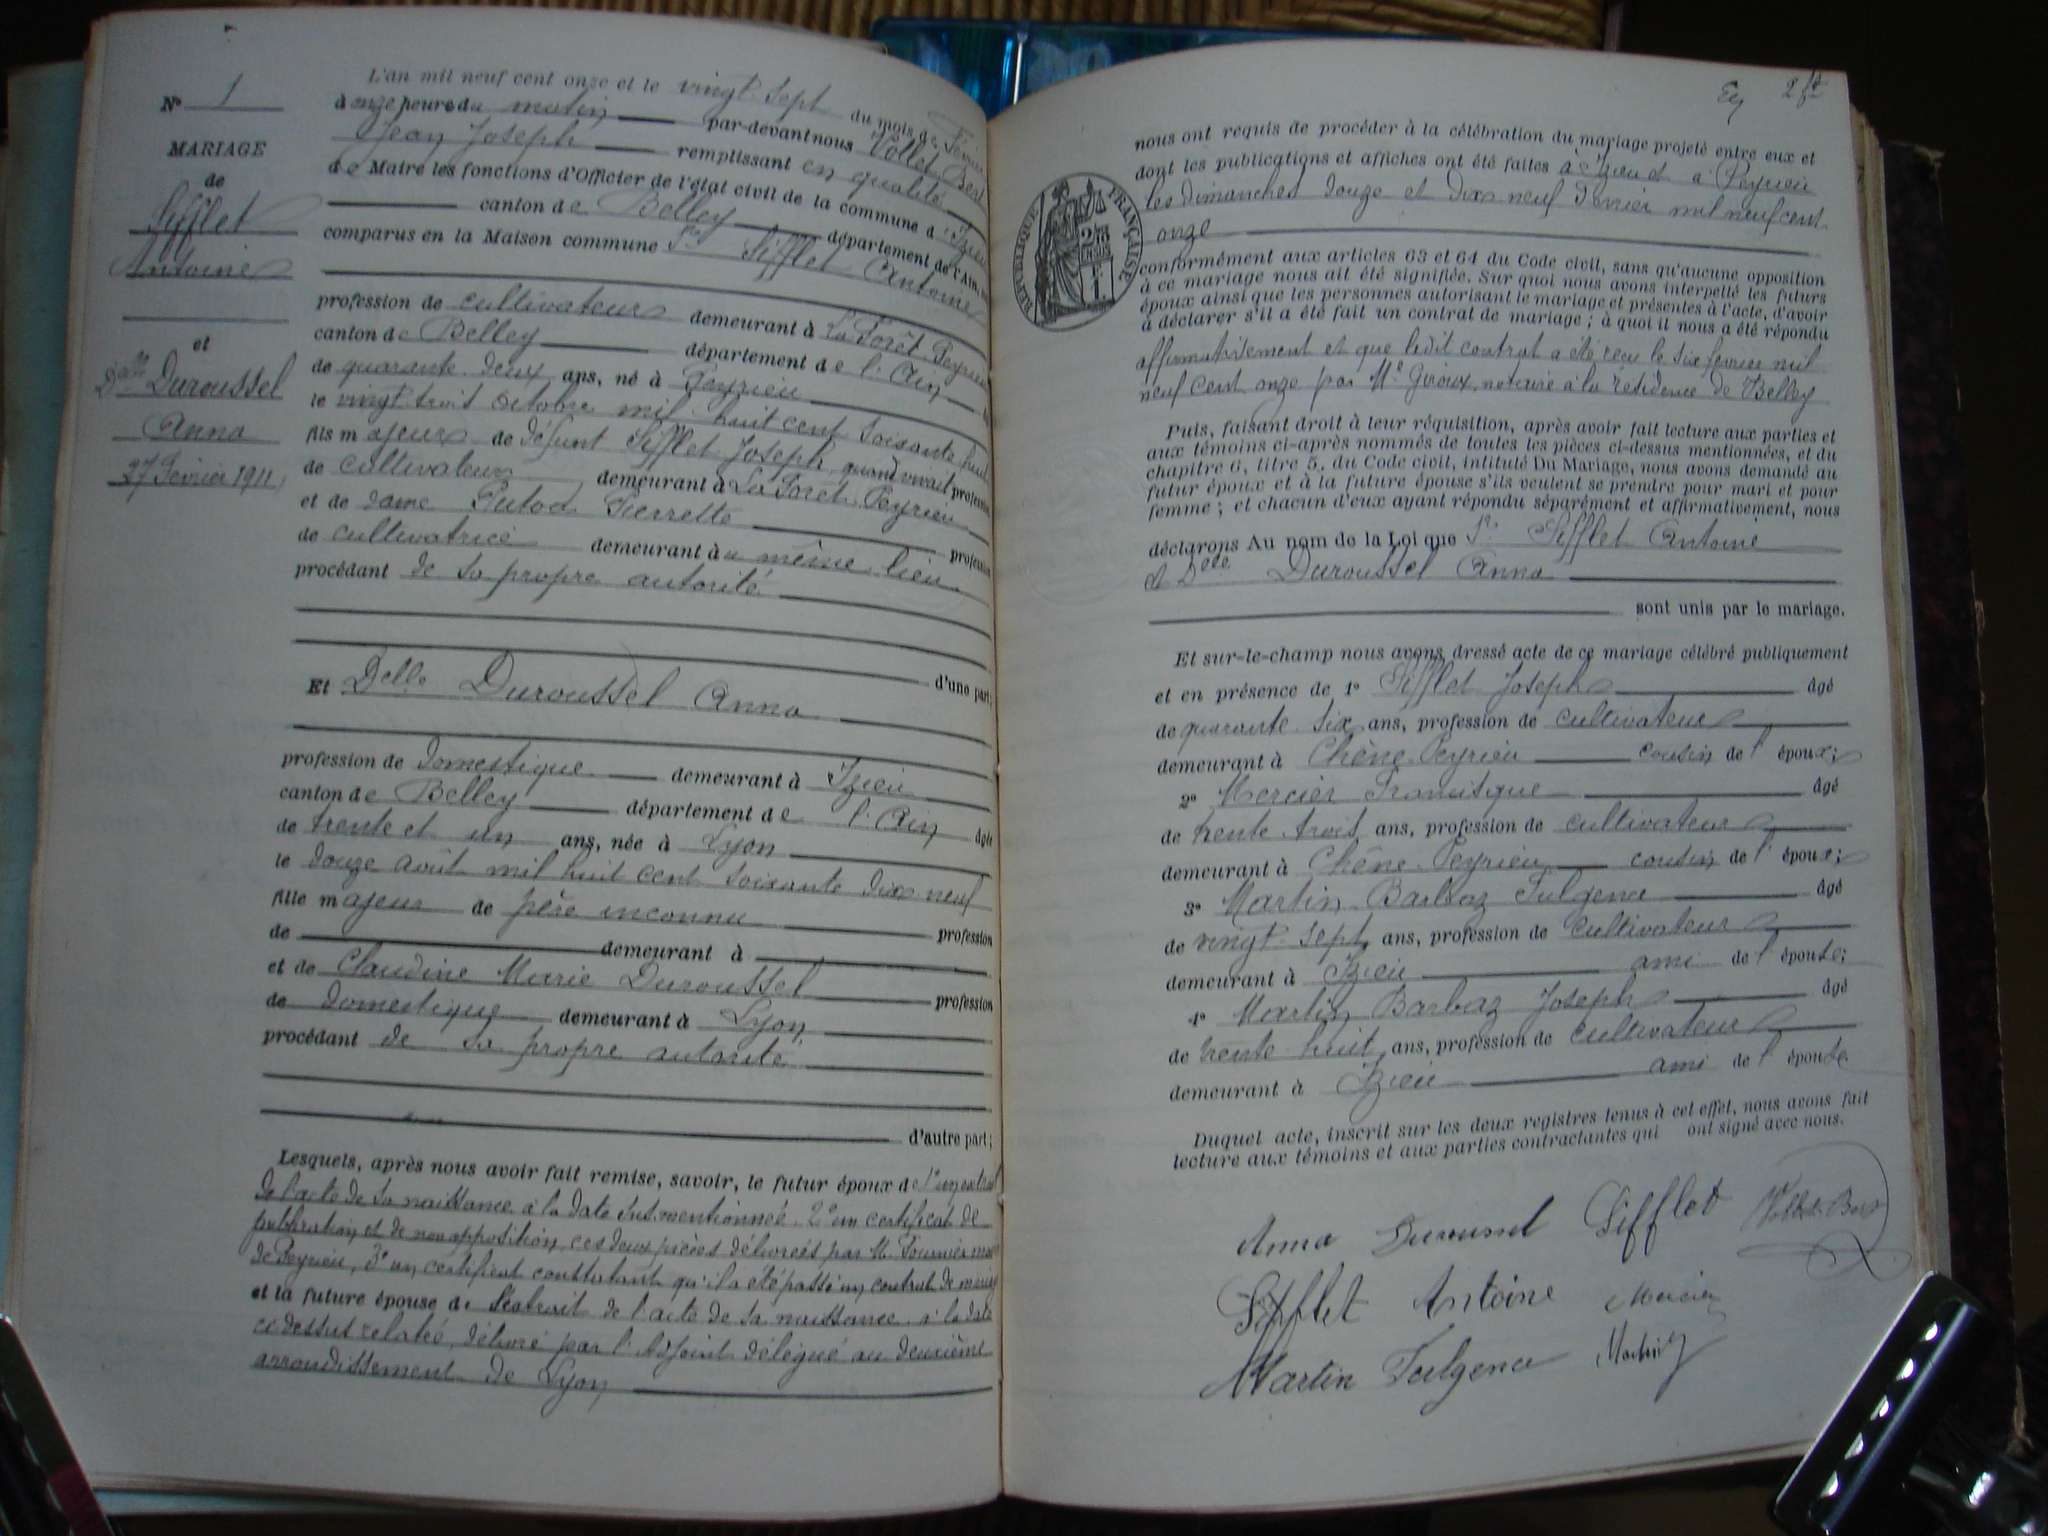 N° 1
MARIAGE
de
Sifflet
Antoine
et
Delle Duroussel
Anna
27 Février 1911
L'an mil neuf cent onze et le vingt sept du mois de Février
à onze heures du matin par-devant nous Vollet Bert
Jean Joseph remplissant en qualité
de Maire les fonctions d'Officier de l'état civil de la commune d'Izieu
canton de Belley département de l'Ain,
comparus en la Maison commune Sr Sifflet Antoine
profession de cultivateur demeurant à La Forêt Peyrieu
canton de Belley département de l'Ain
de quarante deux ans, né à Peyrieu
le vingt trois octobre mil huit cent soixante huit
fils majeur de défunt Sifflet Joseph quand vivait profession
de cultivateur demeurant à La Forêt Peyrieu
et de dame Pierrette profession
de cultivatrice demeurant au même lieu
procédant de sa propre autorité
d'une part;
Et Delle Duroussel Anna
profession de domestique demeurant à Izieu
canton de Belley département de l'Ain âgée
de trente et un ans, née à Lyon
le douze août mil huit cent soixante dix neuf
fille majeur de père inconnu profession
de demeurant à
et de Claudine Marie Duroussel profession
de domestique demeurant à Lyon
procédant de sa propre autorité
d'autre part;
Lesquels, après nous avoir fait remise, savoir, le futur époux de 1° un extrait
de l'acte de sa naissance à la date sus mentionnée 2° un certificat de
publication et de non opposition, ces deux pièces délivrées par M. Fournier maire
de Peyrieu, 3° un certificat constatant qu'il a été passé un contrat de mariage
et la future épouse de l'extrait de l'acte de sa naissance à la date
ci dessus relatée, délivré par l'Adjoint délégué au deuxième
arrondissement de Lyon
2
nous ont requis de procéder à la célébration du mariage projeté entre eux et
dont les publications et affiches ont été faites à Izieu et à Peyrieu
les dimanches douze et dix neuf février mil neuf cent
onze
RÉPUBLIQUE FRANÇAISE
conformément aux articles 63 et 64 du Code civil, sans qu'aucune opposition
à ce mariage nous ait été signifiée. Sur quoi nous avons interpellé les futurs
époux ainsi que les personnes autorisant le mariage et présentes à l'acte, d'avoir
à déclarer s'il a été fait un contrat de mariage ; à quoi il nous a été répondu
affirmativement et que ledit contrat a été reçu le six février mil
neuf cent onze par Me Giroux, notaire à la résidence de Belley
Puis, faisant droit à leur réquisition, après avoir fait lecture aux parties et
aux témoins ci-après nommés de toutes les pièces ci-dessus mentionnées, et du
chapitre 6, titre 5, du Code civil, intitulé Du Mariage, nous avons demandé au
futur époux et à la future épouse s'ils veulent se prendre pour mari et pour
femme ; et chacun d'eux ayant répondu séparément et affirmativement, nous
déclarons Au nom de la Loi que Sr Sifflet Antoine
et Delle Duroussel Anna
sont unis par le mariage.
Et sur-le-champ nous avons dressé acte de ce mariage célébré publiquement
et en présence de 1° Sifflet Joseph âgé
de quarante six ans, profession de cultivateur
demeurant à Chêne Peyrieu cousin de l'époux;
2° Mercier Francisque âgé
de trente trois ans, profession de cultivateur
demeurant à Chêne Peyrieu cousin de l'époux;
3° Martin Barbaz Fulgence âgé
de vingt sept ans, profession de cultivateur
demeurant à Izieu ami de l'épouse;
4° Martin Barbaz Joseph âgé
de trente huit ans, profession de cultivateur
demeurant à Izieu ami de l'épouse
Duquel acte, inscrit sur les deux registres tenus à cet effet, nous avons fait
lecture aux témoins et aux parties contractantes qui ont signé avec nous.
Anna Duroussel Sifflet Vollet-Bert
Sifflet Antoine Mercier
Martin Fulgence Martin